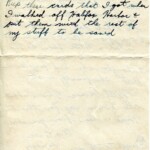 Kep the cards that I got when
I walked off Halifax Harbor &
put them with the rest of
my stuff to be saved